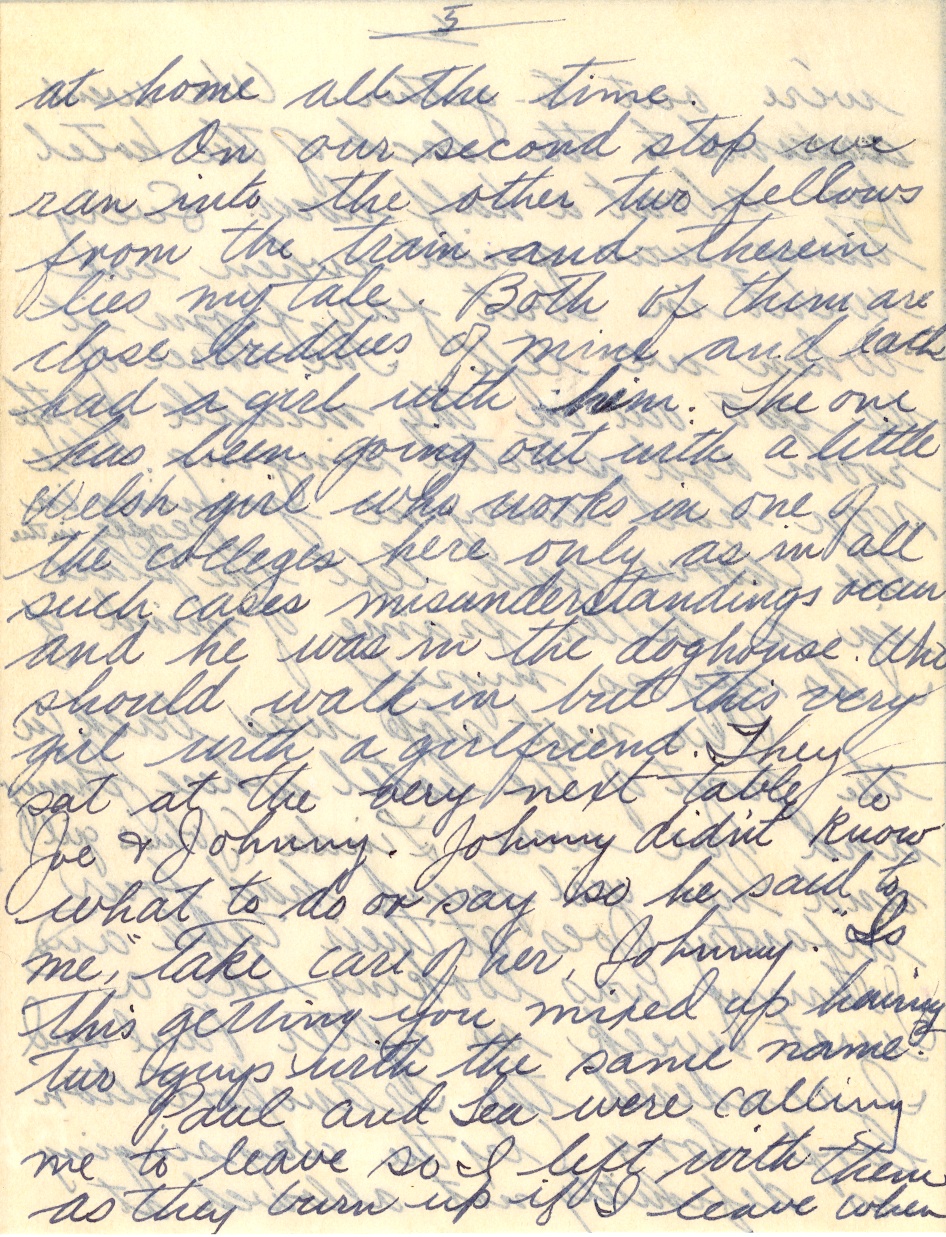 5
at home all the time.
On our second stop we
ran into the other two fellows
from the train and therein
lies my tale. Both of them are
close buddies of mine and each
had a girl with him. The one
has been going out with a little
Welsh girl who works in one of
the colleges here only as in all
such cases misunderstandings occur
and he was in the doghouse. Who
should walk in but this very
girl with a girlfriend. They
sat at the very next table to
Joe & Johnny. Johnny didn't know
what to do or say so he said to
me, "Take care of her, Johnny." Is
this getting you mixed up having
two guys with the same name?
Paul and Lea were calling
me to leave so I left with them
as they burn up if I leave when